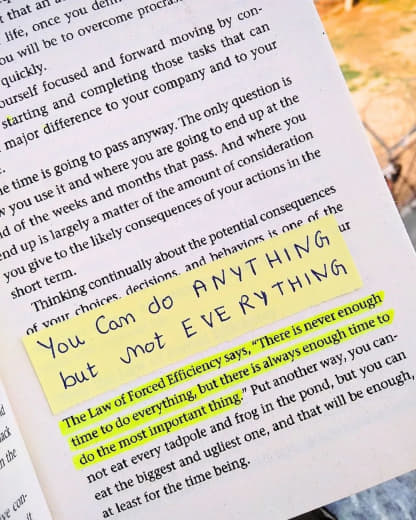 t that an
life, once you
ou will be to overcome
quickly.
ourself focused and forward moving by con-
starting and completing those tasks that can
major difference to your company and to your
e time is going to pass anyway. The only question is
you use it and where you are going to end up at the
d of the weeks and months that pass. And where you
end up is largely a matter of the amount of consideration
you give to the likely consequences of your actions in the
short term.
Thinking continually about the potential consequences
of your choices, decisions, and behaviors is one of the
ur
You Can do ANYTHING
but not EVERYTHING
The Law of Forced Efficiency says, "There is never enough
time to do everything, but there is always enough time to
do the most important thing." Put another way, you can-
not eat every tadpole and frog in the pond, but you can
eat the biggest and ugliest one, and that will be enough,
at least for the time being.
ack
n the
ve con-